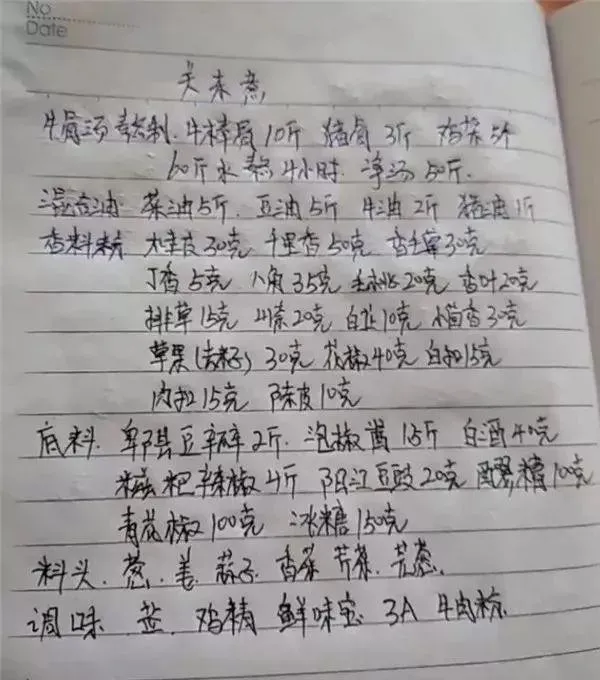 No
Date
关东煮
牛骨汤熬制.牛棒骨10斤 猪骨3斤 鸡架5个
60斤水熬4小时.净汤50斤.
混合油 菜油5斤. 豆油5斤 牛油2斤 猪油1斤
香料粉 木圭皮30克 千里香50克 香毛草30克
丁香5克 八角35克 毛桃20克 香叶20克
排草15克 山奈20克 白芷10克 小茴香30克
草果(去籽)30克 花椒40克 白扣15克
肉扣15克 陈皮10克
底料.郫县豆辛碎2斤.泡椒酱15斤 白酒40克
糍粑辣椒4斤 阳江豆豉20克 醪糟100克
青花椒100克 冰糖150克
料头.葱.姜.蒜子.香菜.芹菜.
调味 盐.鸡精 鲜味宝 3A 牛肉粉